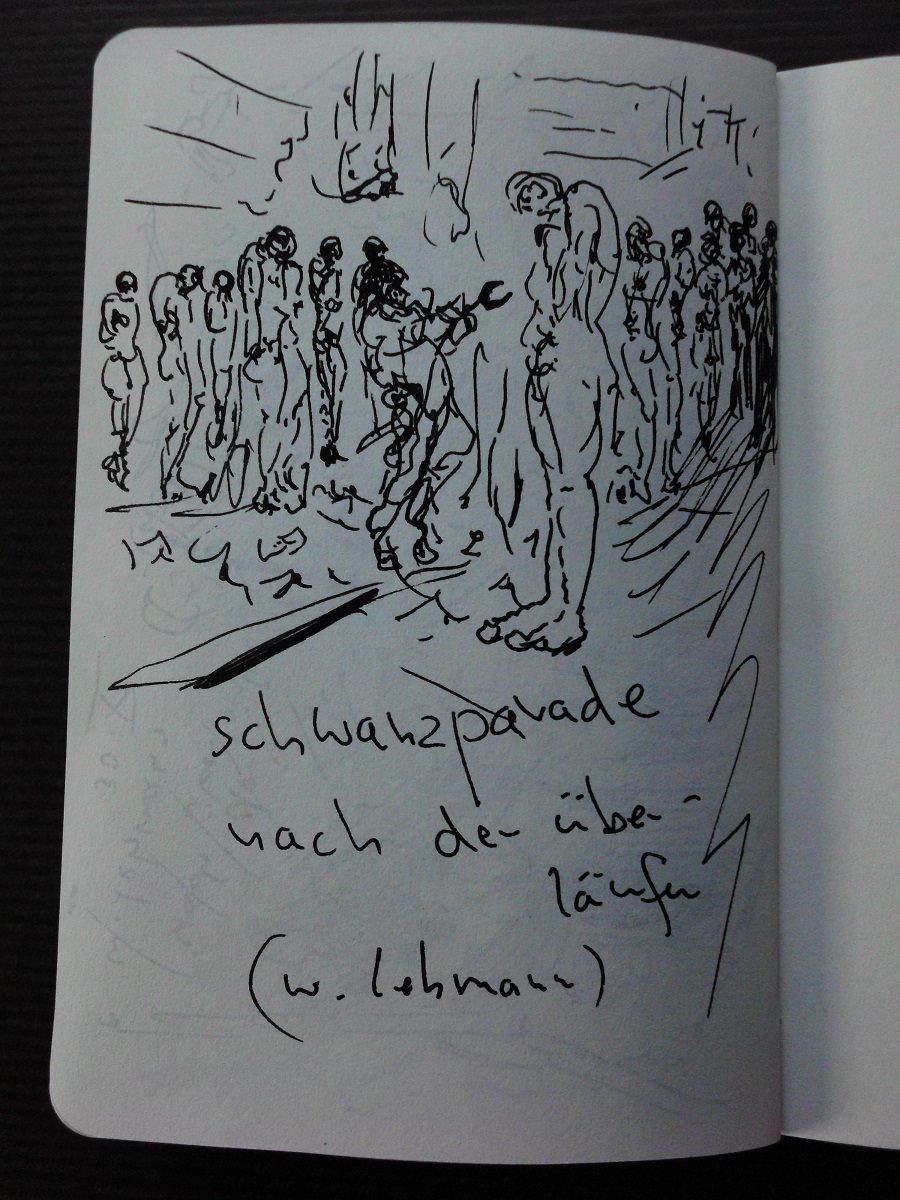 schwanzparade
nach der über-
läufer
(w. lehmann)